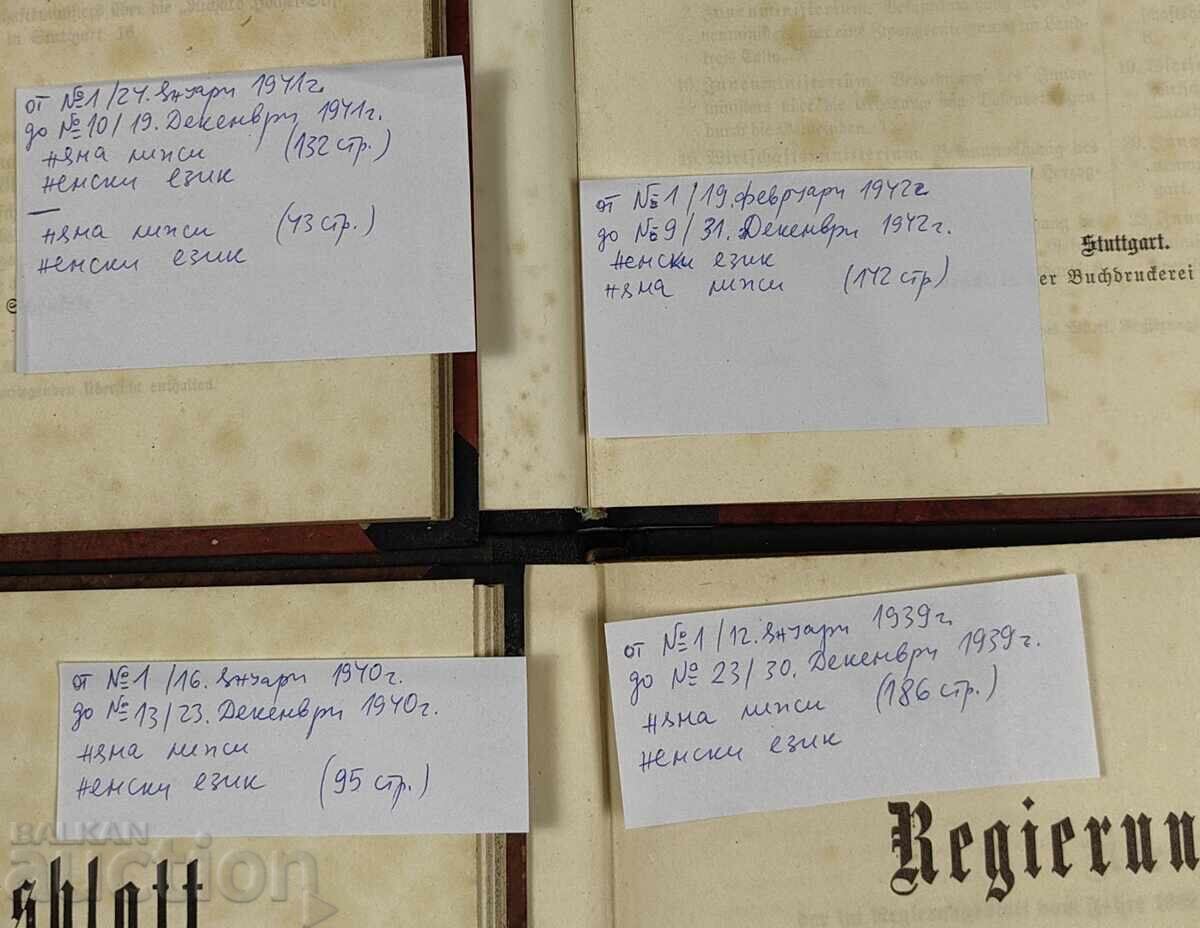 in Stuttgart 16
от №1/24. Януари 1941г.
до №10/19. Декември 1941г.
няма липси (132 стр.)
немски език
—
няма липси (43 стр.)
немски език
enthalten
от №1/19. февруари 1942г
до №9/31. Декември 1942г.
немски език
няма липси (142 стр)
Stuttgart.
er Buchdruckerei
от №1/16. Януари 1940г.
до №13/23. Декември 1940г.
няма липси
немски език (95 стр.)
от №1/12. Януари 1939г.
до №23/30. Декември 1939г.
няма липси (186 стр.)
немски език
sblatt
Regierun
BALKAN
auction